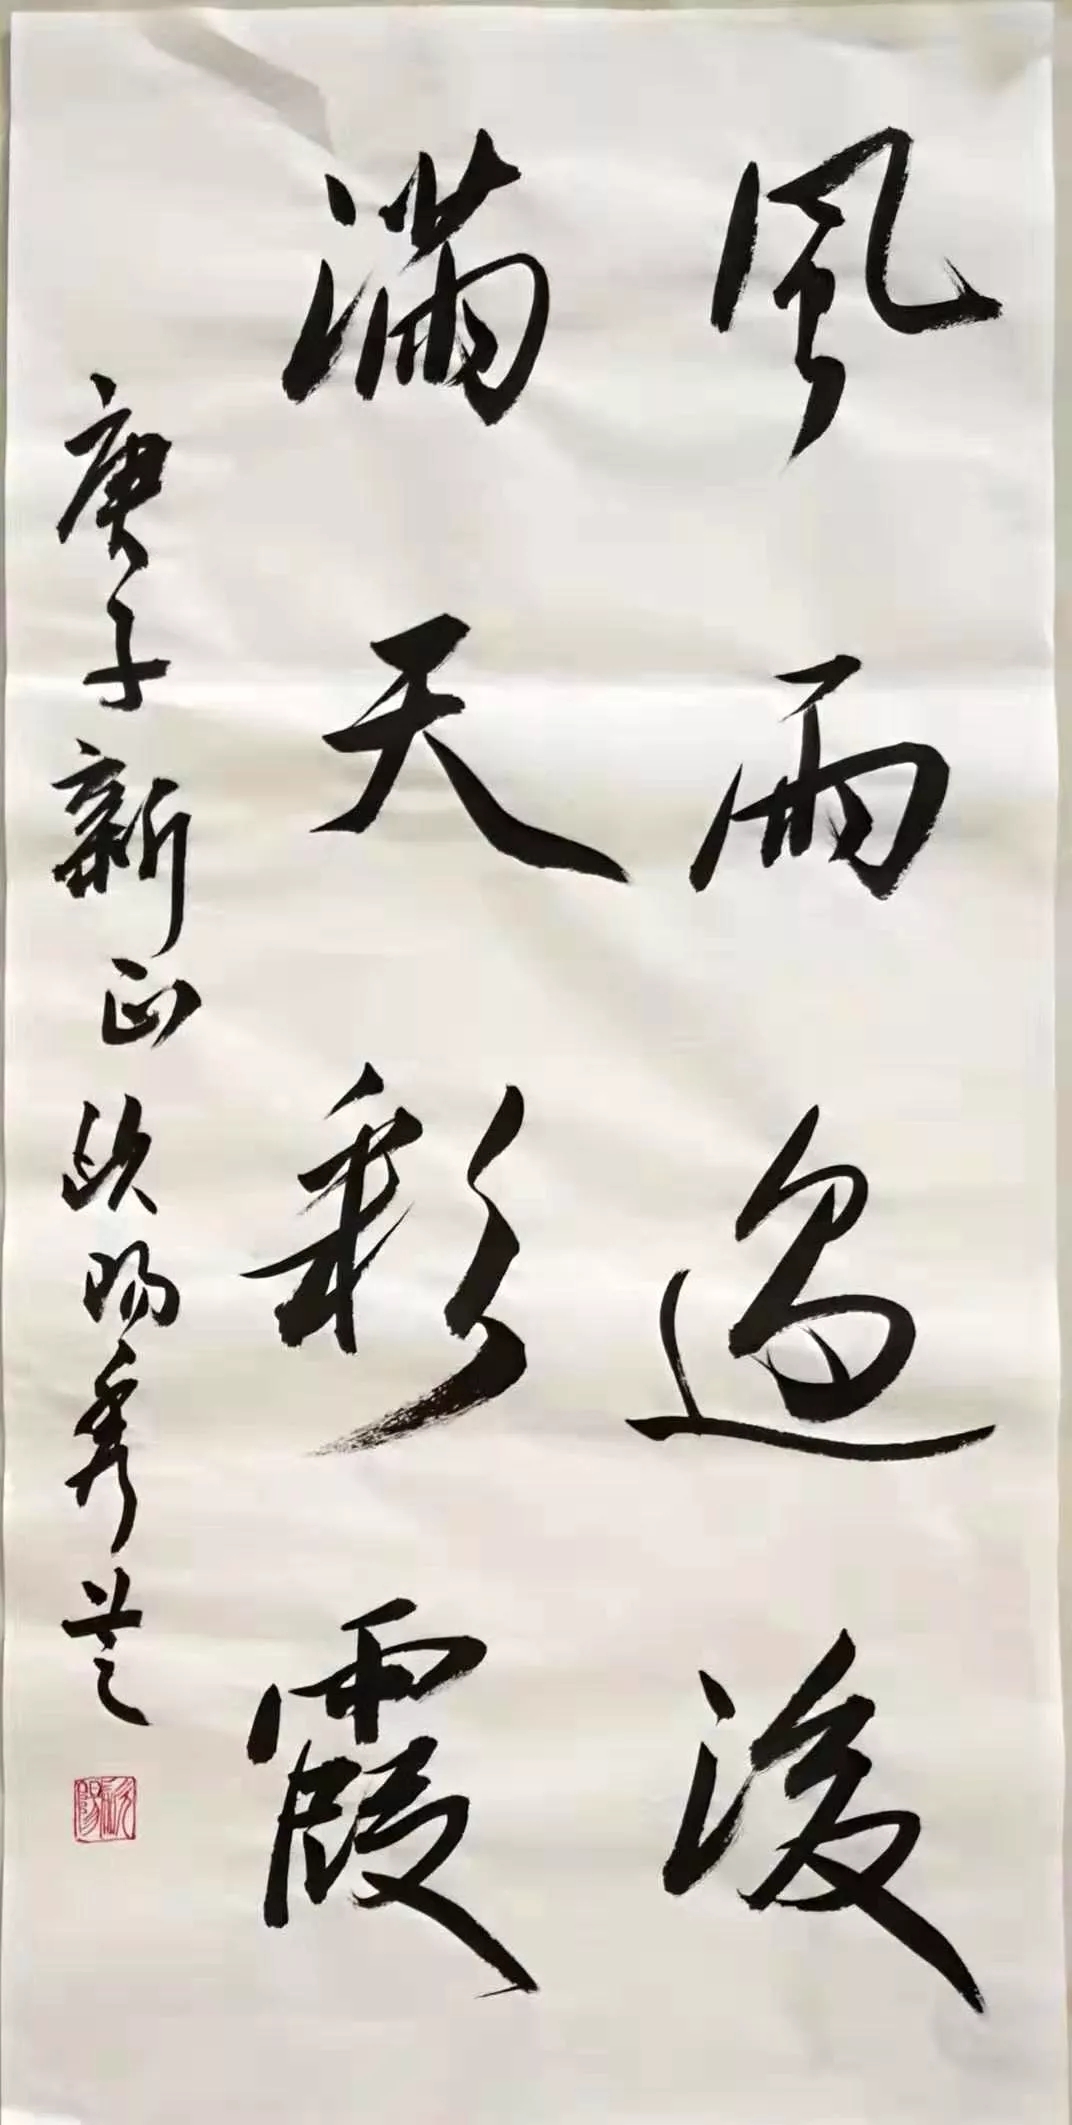 風雨過後
滿天彩霞
庚子新正欧陽秀芝